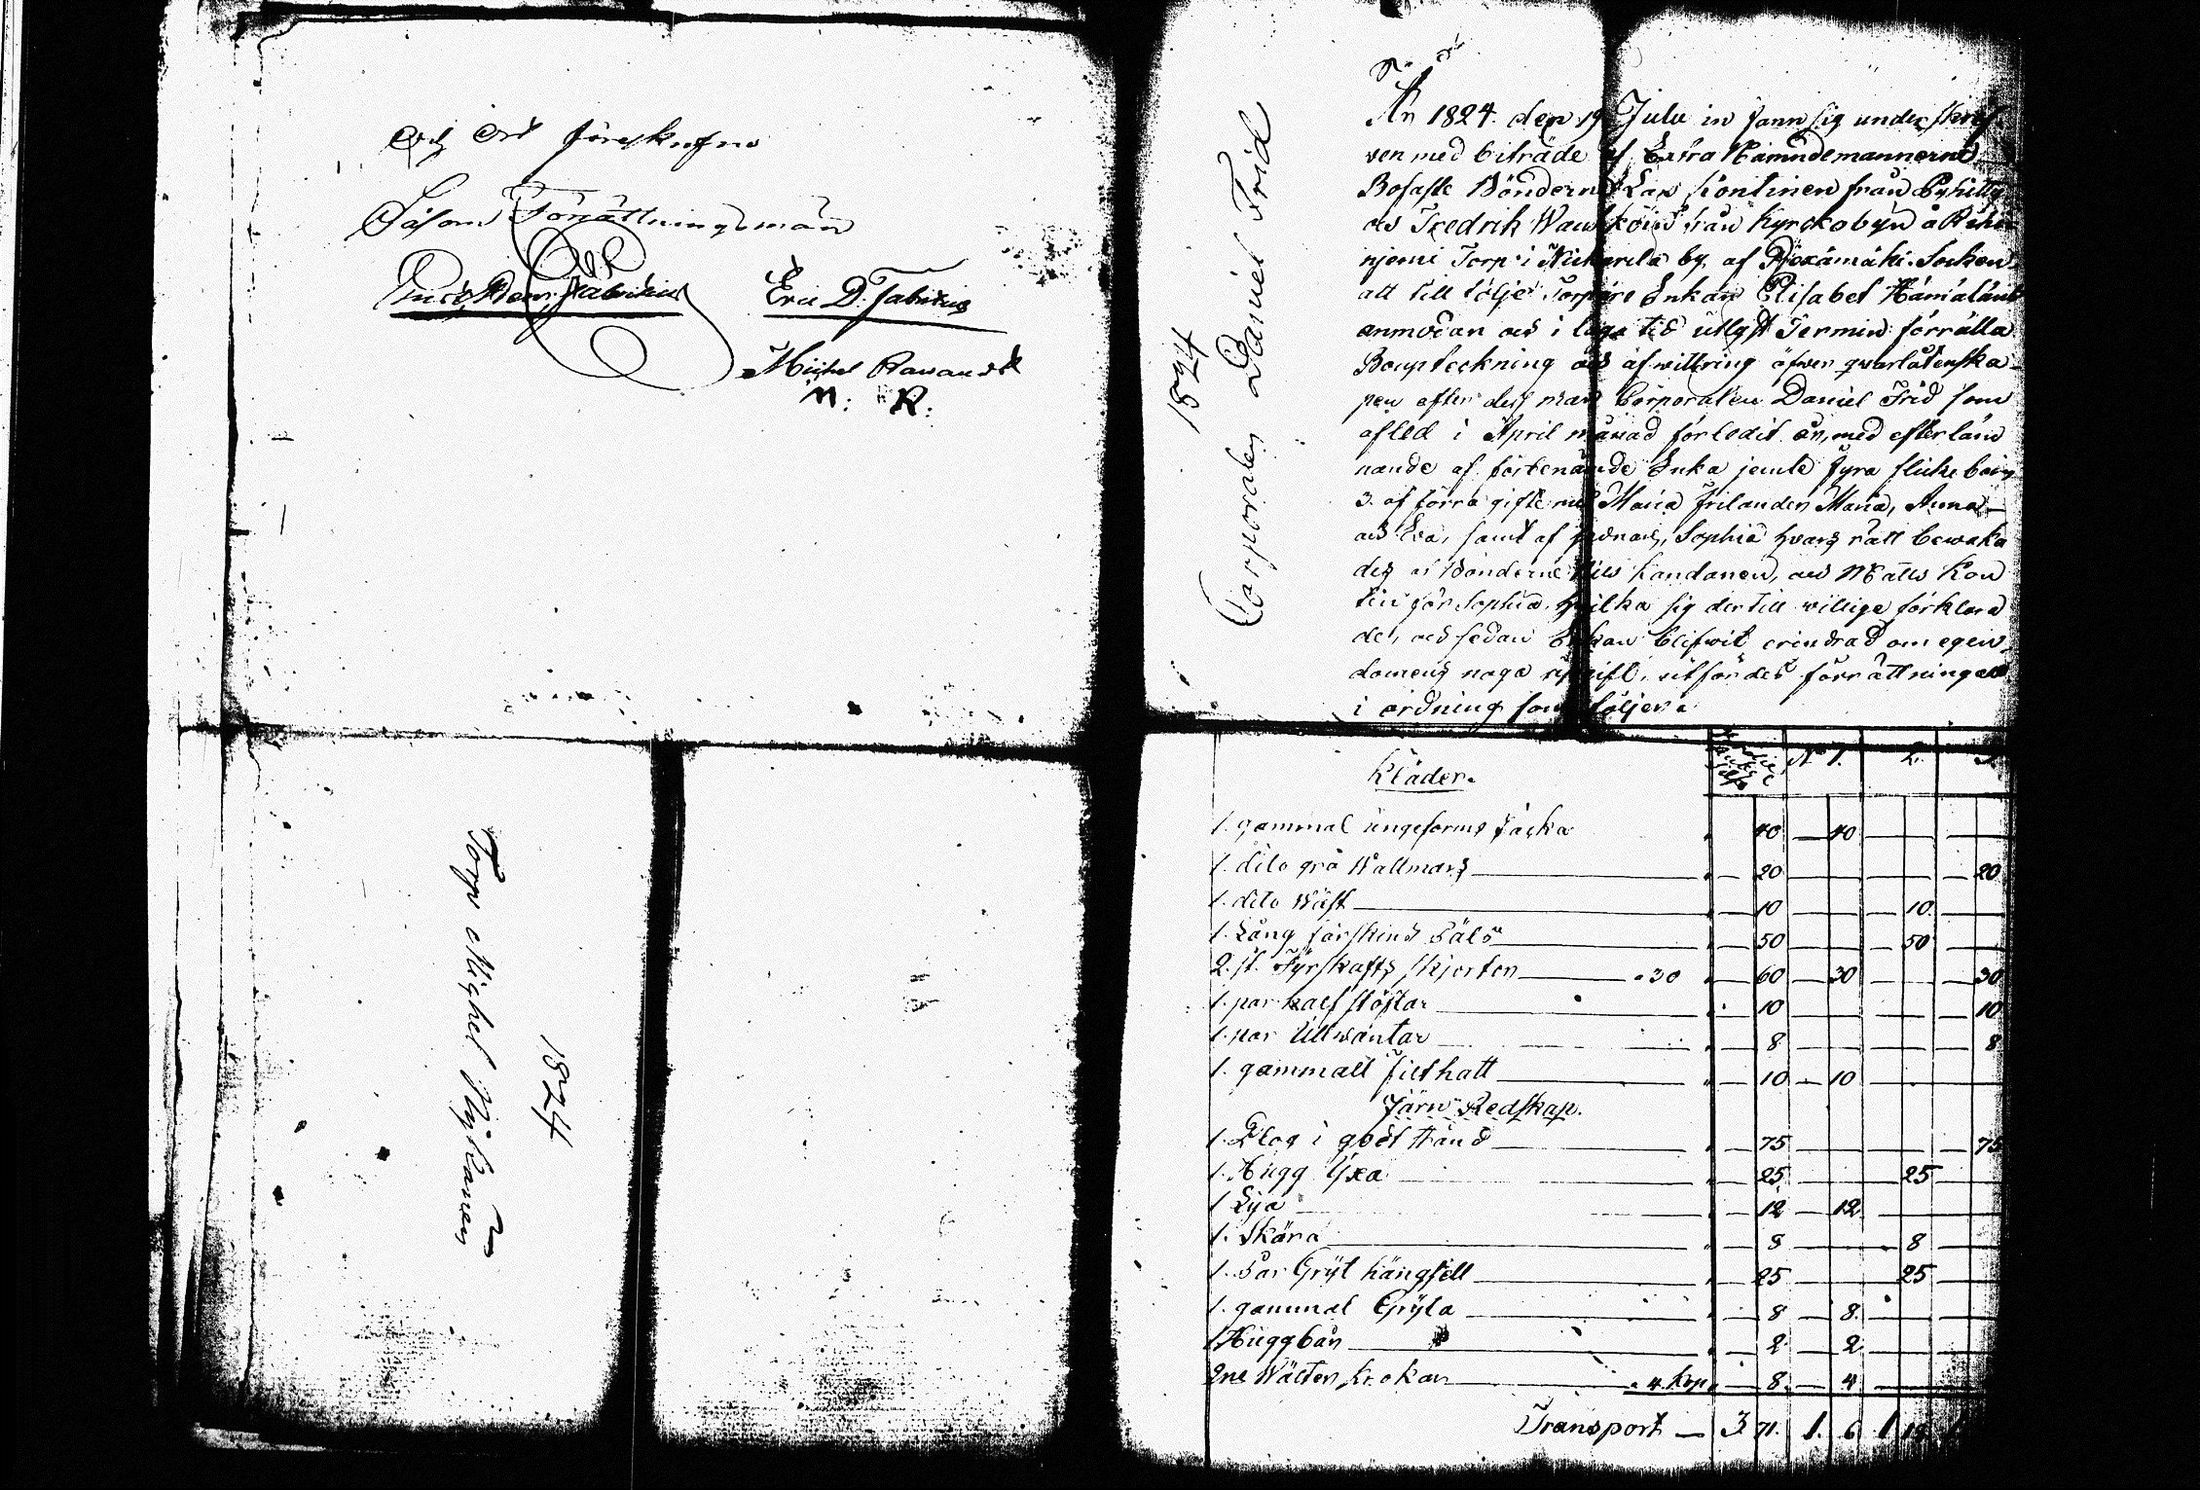 År och Ort föreskrefne
Såsom Förrättningsman
Eric D. Fabricius
Michel
M: R:
Torp Michel Nykanen
1824
Corporalen Daniel Frid
1824
År 1824 den 19 Julii in fann sig under skrif
ven med biträde af Extra Nämndemannerne
Bofaste Bönderne Lars Kontinen från Pyhitty
och Fredrik från Kyrckobyn å
njemi Torp i by af Pjexämäki Socken
att till följe Torpare Enkan Elisabet Hämäläns
anmodan och i laga tid utlyst Termin förrätta
Bouptekning och afwittring öfwer qvarlåtenska
pen efter dess man Corporalen Daniel Frid som
afled i April månad förledit år, med efterläm
nande af förbenämde Enka jemte fyra flicke barn
3. af förra gifte med Maria Frilander Maria, Anna
och Eva, samt af sednare, Sophia hvars rätt bewaka
des af Bönderne Nils Kandanen, och Matts Kon
tin för Sophia, hvilka sig dertill willige förklara
de, och sedan Enkan blifwit erindrad om egen
domens noga uppgift, utfördes förrättningen
i ordning som följer:
Kläder. N° 1. 2.
1. gammal ungeforms Jacka 40 40
1. dito grå Wallmars 20 20
1. dito Wäst 10 10
1. Lång fårskinds Päls 50 50
2. st. Fyrskafts skjortor 30 60 30 30
1. par half stöflar 10 10
1. par Ullwantar 8 8
1. gammalt Filthatt 10 10
Järn Redskap.
1. Plog i godt stånd 75 75
1. Hugg Yxa 25 25
1 Lija 12 12
1. Skära 8 8
1. Par Gryt hängsell 25 25
1. gammal Gryta 8 8
1 Huggbån 2 2
2ne Wälten krokar 4 kop 8 4
Transport 3 71. 1. 6 1 18